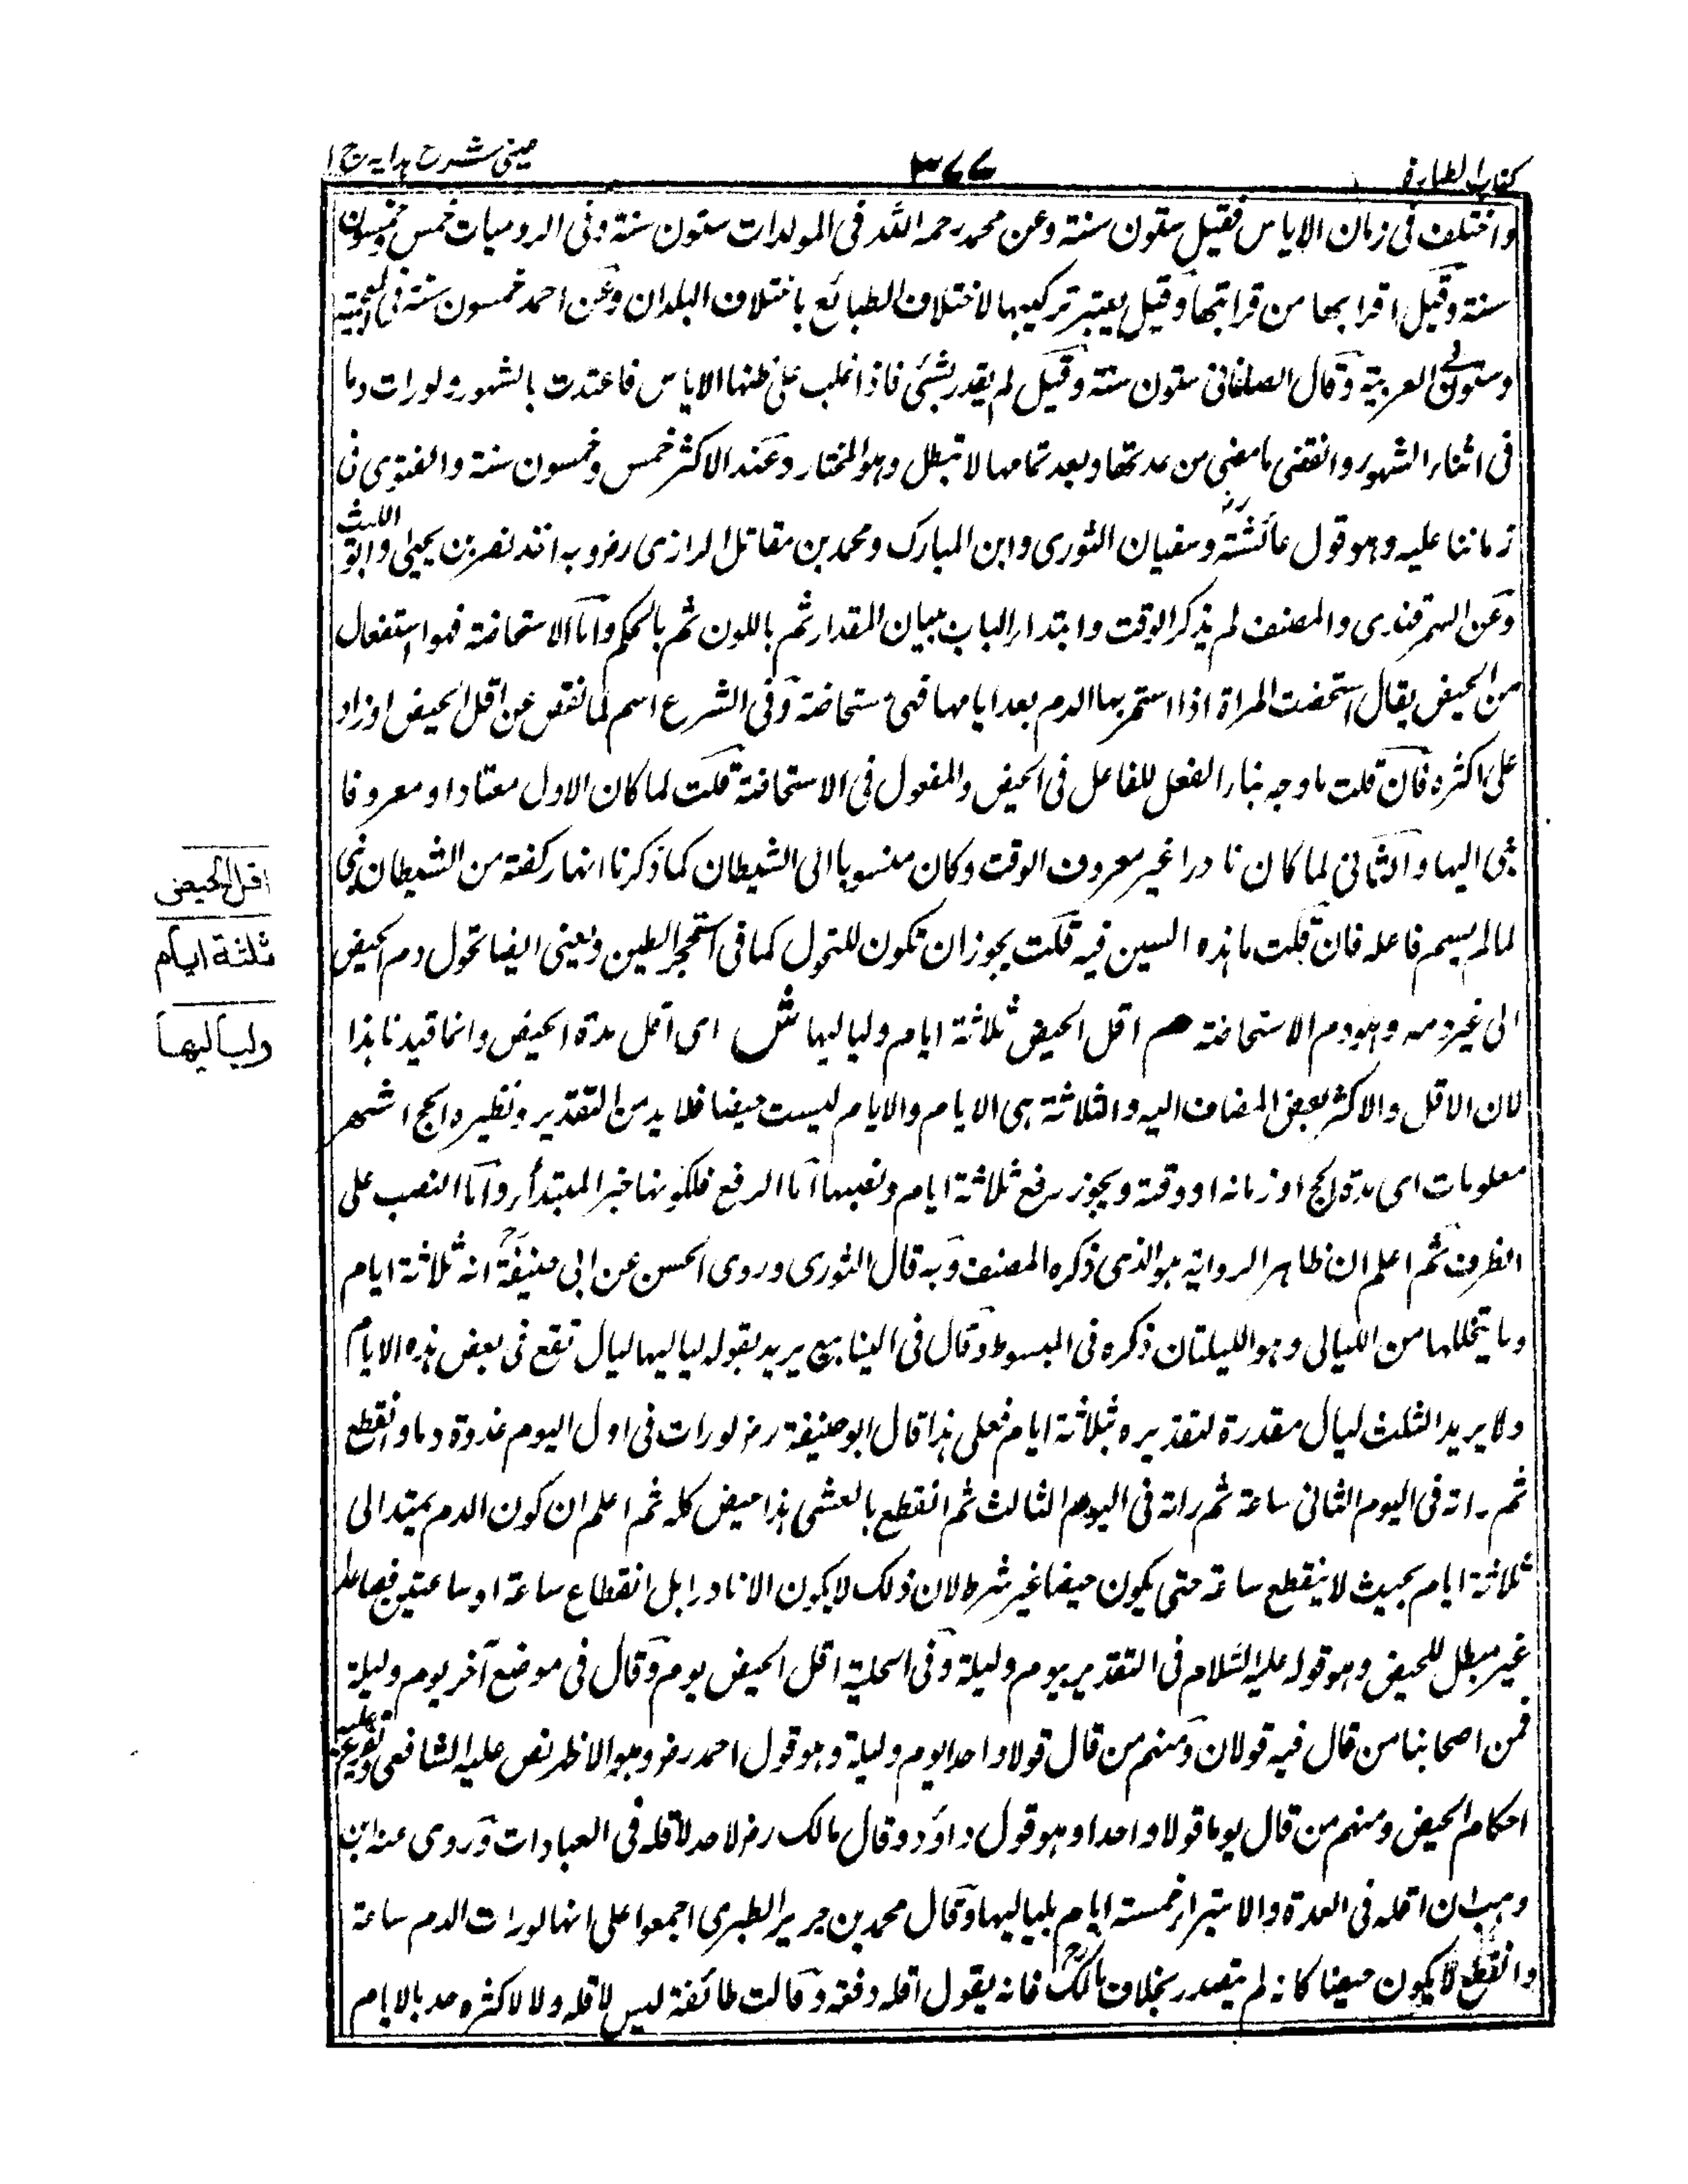 كتاب الطهارة
٣٧٧
عينى شرح هدايه ج ١
واختلف فى زمان الاياس فقيل ستون سنة وعن محمد رحمه الله فى المولدات ستون سنة وفى الروميات خمس وخمسون
سنة وقيل اقرابها من قرابتها وقيل يعتبر تركيبها لاختلاف الطبائع باختلاف البلدان وعن احمد خمسون سنة فى العجمية
وستون فى العربية وقال الصاغانى ستون سنة وقيل لم يقدر بشئ فاذا غلب على ظنها الاياس فاعتدت بالشهور ولو رات دما
فى اثناء الشهور وانتقض ما مضى من عدتها وبعد تمامها لا تبطل وهو المختار وعند الاكثر خمس وخمسون سنة والفتوى فى
زماننا عليه وهو قول عائشة رض وسفيان الثورى وابن المبارك ومحمد بن مقاتل الرازى رض وبه اخذ نصر بن يحيى وابو الليث
وعن السمرقندى والمصنف لم يذكر الوقت وابتداء الباب ببيان المقدار ثم باللون ثم بالحكم واما الاستحاضة فهو استفعال
من الحيض يقال استحضت المراة اذا استمر بها الدم بعد ايامها فهى مستحاضة وفى الشرع اسم لما نقص عن اقل الحيض او زاد
على اكثره فان قلت ما وجه بناء الفعل للفاعل فى الحيض والمفعول فى الاستحاضة قلت لما كان الاول معتادا ومعروفا
نسب اليها والثانى لما كان نادرا غير معروف الوقت وكان منسوبا الى الشيطان كما ذكرنا انها ركضة من الشيطان بنى
لما لم يسم فاعله فان قلت ما هذه السين فيه قلت يجوز ان تكون للتحول كما فى استحجر الطين وبمعنى ايضا تحول دم الحيض
الى غير دمه وهو دم الاستحاضة هم اقل الحيض ثلاثة ايام ولياليها ش اى اقل مدة الحيض وانما قيدنا بهذا
لان الاقل والاكثر بعض المضاف اليه والثلاثة هى الايام والايام ليست حيضا فلا بد من التقدير ونظيره الحج اشهر
معلومات اى مدة الحج او زمانه او وقته ويجوز رفع ثلاثة ايام ونصبها اما الرفع فلكونها خبر المبتدأ واما النصب على
الظرف ثم اعلم ان ظاهر الرواية هو الذى ذكره المصنف وبه قال الثورى وروى الحسن عن ابى حنيفة رح انه ثلاثة ايام
وما يتخللها من الليالى وهو الليلتان ذكره فى المبسوط وقال فى الينابيع يريد بقوله لياليها ليال تقع فى بعض هذه الايام
ولا يريد الثلث ليال مقدرة لتقديره بثلاثة ايام فعلى هذا قال ابو حنيفة رض لو رات فى اول اليوم غدوة دما وانقطع
ثم راته فى اليوم الثانى ساعة ثم راته فى اليوم الثالث ثم انقطع بالعشى هذا حيض كله ثم اعلم ان كون الدم يمتد الى
ثلاثة ايام بحيث لا ينقطع ساعة حتى يكون حيضا غير شرط لان ذلك لا يكون الا نادرا بل انقطاع ساعة او ساعتين فصاعدا
غير مبطل للحيض وهو قوله عليه السلام فى التقدير بيوم وليلة وفى الحلية اقل الحيض يوم وقال فى موضع آخر يوم وليلة
فمن اصحابنا من قال فيه قولان ومنهم من قال قولا واحدا يوم وليلة وهو قول احمد رض وهو الاظهر نص عليه الشافعى وتفريع عليه
احكام الحيض ومنهم من قال يوما قولا واحدا وهو قول داؤد وقال مالك رض لا حد لاقله فى العبادات وروى عنه ابن
وهب ان اقله فى العدة والاستبراء خمسة ايام بلياليها وقال محمد بن جرير الطبرى اجمعوا على انها لو رات الدم ساعة
وانقطع لا يكون حيضا كانه لم يتصدر بخلاف مالك رح فانه يقول اقله دفعة وقالت طائفة ليس لاقله ولا لاكثره حد بالايام
اقل الحيض
ثلثة ايام
ولياليها